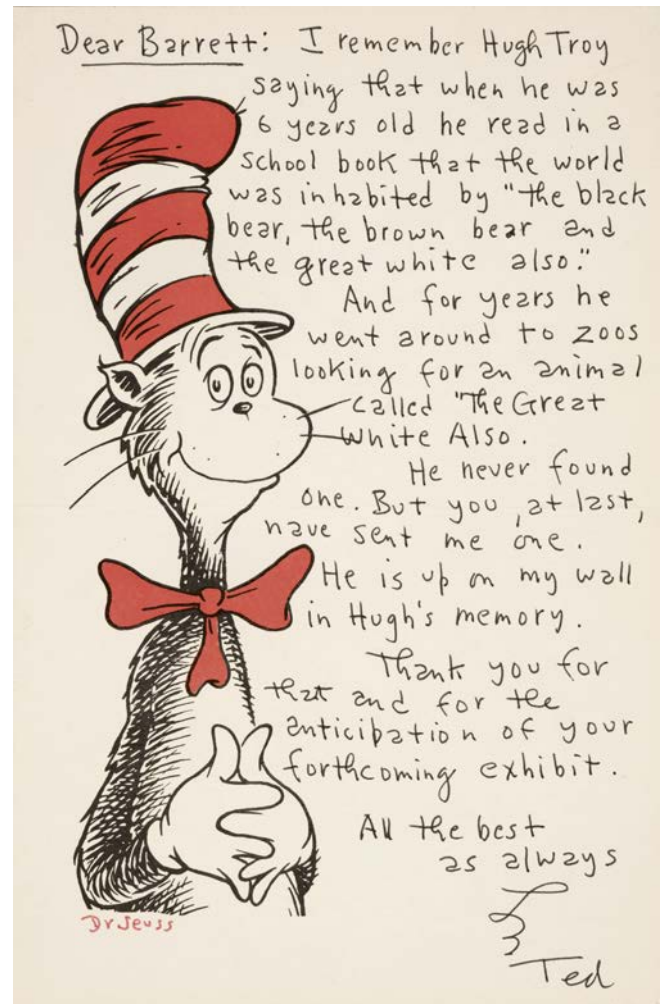 Dear Barrett: I remember Hugh Troy
saying that when he was
6 years old he read in a
school book that the world
was inhabited by "the black
bear, the brown bear and
the great white also."
And for years he
went around to zoos
looking for an animal
called "The Great
White Also.
He never found
one. But you, at last,
have sent me one.
He is up on my wall
in Hugh's memory.
Thank you for
that and for the
anticipation of your
forthcoming exhibit.
All the best
as always
Ted
Dr Seuss